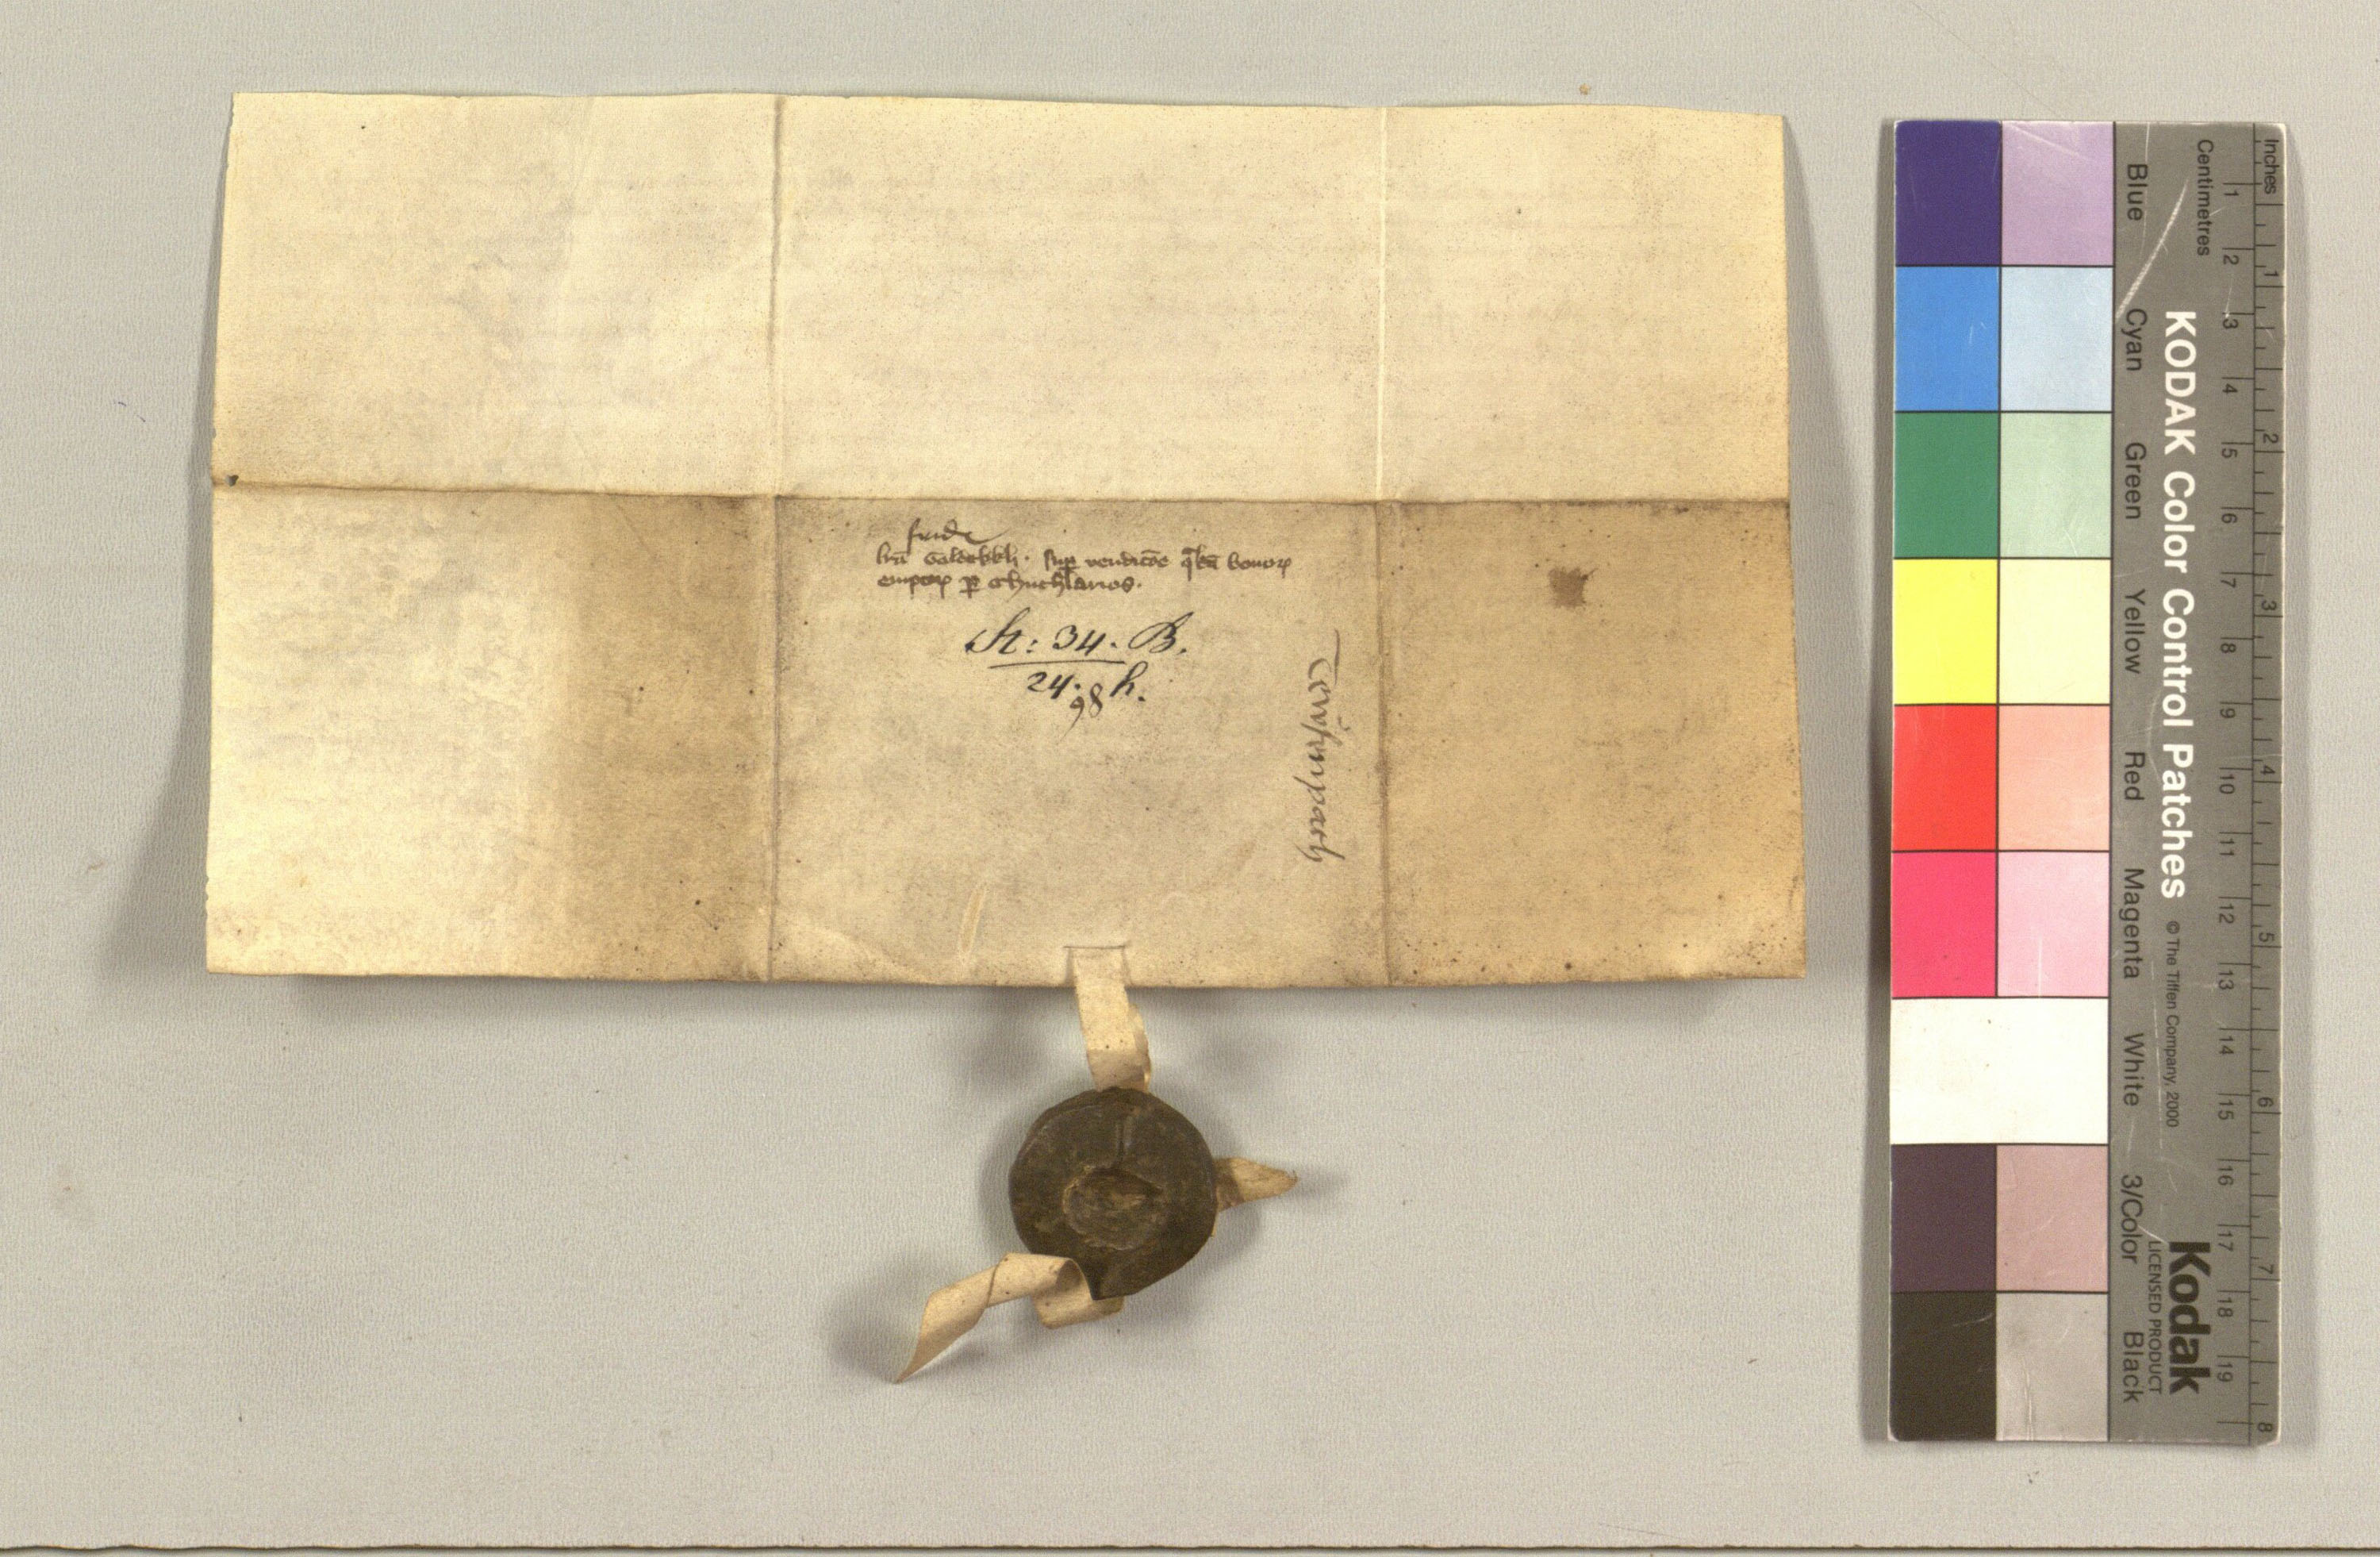 frid
lrã Goldekkh. sup vendicõe qkã bonoꝝ
empcoꝝ ꝑ Chuchlarios.
St: 34. B.
24. h.
98
Teufenpach
Inches
Centimetres
1 2 3 4 5 6 7 8 9 10 11 12 13 14 15 16 17 18 19
1 2 3 4 5 6 7 8
KODAK Color Control Patches © The Tiffen Company, 2000
Kodak
LICENSED PRODUCT
Blue Cyan Green Yellow Red Magenta White 3/Color Black